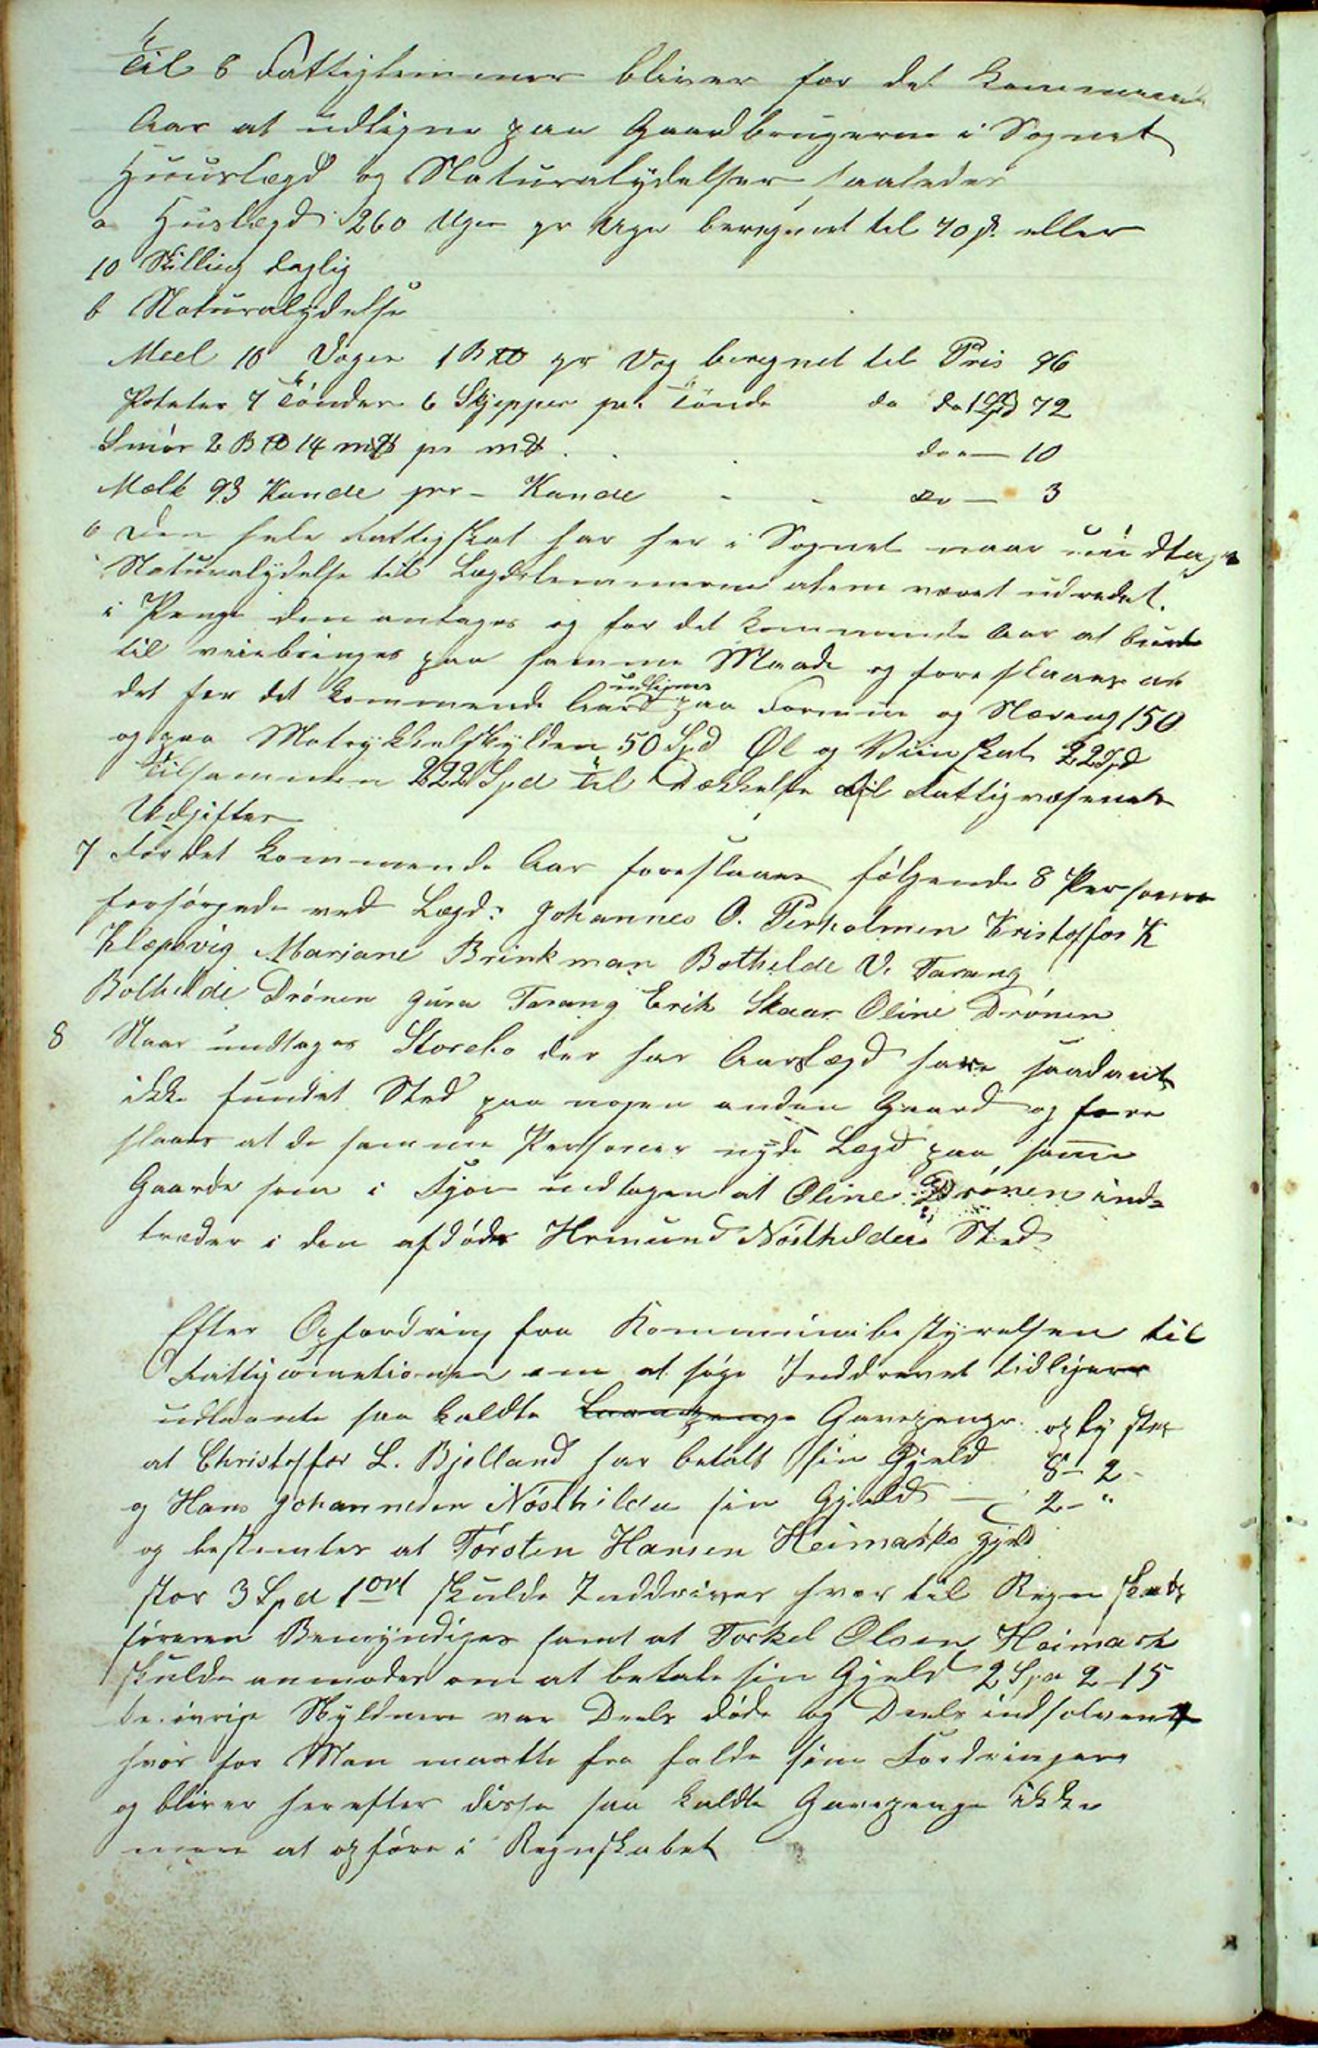 Til 8 Fattiglemmer bliver for det kommende
Aar at udligne paa Gaardbrugerne i Sognet
Huuslægd og Naturalydelser saaledes
a Huslægd 260 Uger pr Uge beregnet til 70 s. eller
10 Skilling daglig
b Naturalydelse
Meel 10 Voger 1 B℔ pr Vog beregnet til Pris 96
Poteter 7 Tönder 6 Skjepper pr. Tönde do do 72
Smör 2 B℔ 14 m℔ pr m℔ . . do " — 10
Melk 93 Kande pr - Kande - - do — 3
6 Den hele Fattigskat har her i Sognet naar undtages
Naturalydelse til Lægdslemmerne alene været udredet
i Penge den antages og for det kommende Aar at burde
tilveiebringes paa samme Maade og foreslaaes at
det for det kommende Aar udlignes paa Formue og Næring 150
og paa Matrykkelskylden 50 Spd Øl og Viinskat 22 Spd
Tilsammen 222 Spd til Dækkelse til Fattigvæsenets
Udgifter
7 For det kommende Aar foreslaaes følgende 8 Personer
forsörgede ved Lægd: Johannes O. Perholmen Kristoffer K
Klepsvig Mariane Brinkman Bothelde V. Tarang
Bolhelde Drönen Gura Tarang Erik Skaar Oline Drönen
8 Naar undtages Storebö der har Aarslægd have saadant
ikke fundet Sted paa nogen anden Gaard og fore
slaaes at de samme Personer nyde Lægd paa samme
Gaarde som i Fjor undtagen at Oline Drönen ind=
træder i den afdöde Hermund Nösthildes Sted
Efter Opfordring fra Kommunebestyrelsen til
Fattigcomissionen om at söge Inddrevet tidligere
udlaante saa kaldte Laanepenge Gavepenge oplystes
at Christoffer L. Bjelland har betalt sin Gjeld 8 - 2 -
og Hans Johannesen Nösthilde sin Gjeld — 2 - "
og bestemtes at Torsten Hansen Heimarks Gjeld
stor 3 Spd 1 ort skulde Inddrives hvor til Regnskabs
föreren Bemyndiges samt at Torkel Olsen Heimark
skulde anmodes om at betale sin Gjeld 2 Spd 2 - 15
de övrige Skyldnere var Deels döde og Deels indsolvent
hvor for Man maatte fra falde sine Fordringer
og bliver herefter disse saa kaldte Gavepenge ikke
mere at opföre i Regnskabet